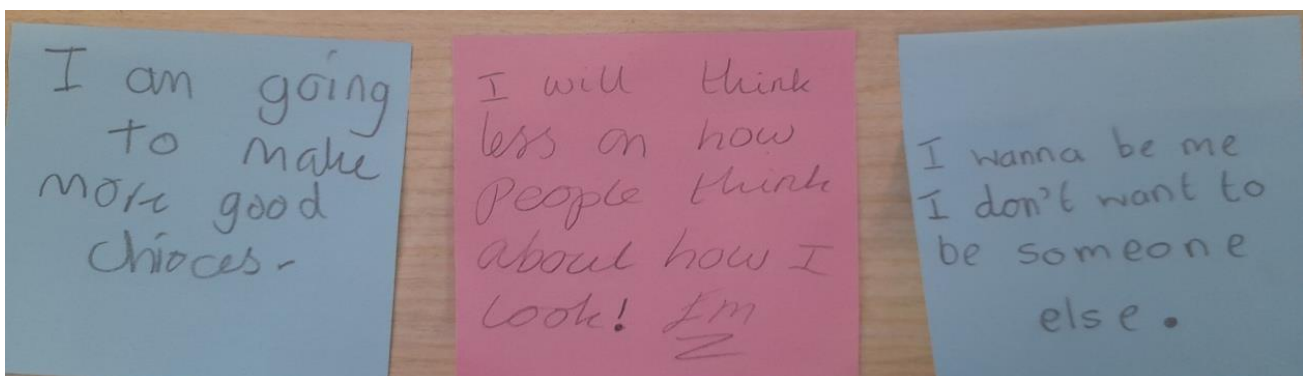 I am going
to make
more good
chioces.
I will think
less on how
people think
about how I
look! Im
I wanna be me
I don't want to
be someone
else.